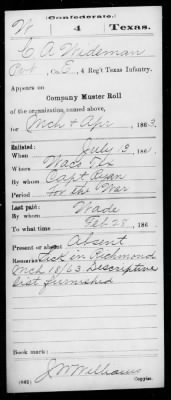 W
(Confederate.)
4
Texas.
C A Wideman
Pvt, Co. E, 4 Reg't Texas Infantry.
Appears on
Company Muster Roll
of the organization named above,
for Mch & Apr, 1863.
Enlisted:
When July 13, 186
Where Waco Tex
By whom Capt Ryan
Period For the War
Last paid:
By whom Wade
To what time Feb 28, 186
Present or absent Absent
Remarks: Sick in Richmond
Mch 18/63 Descriptive
list furnished
Book mark:
J W Williams
(642)
Copyist.